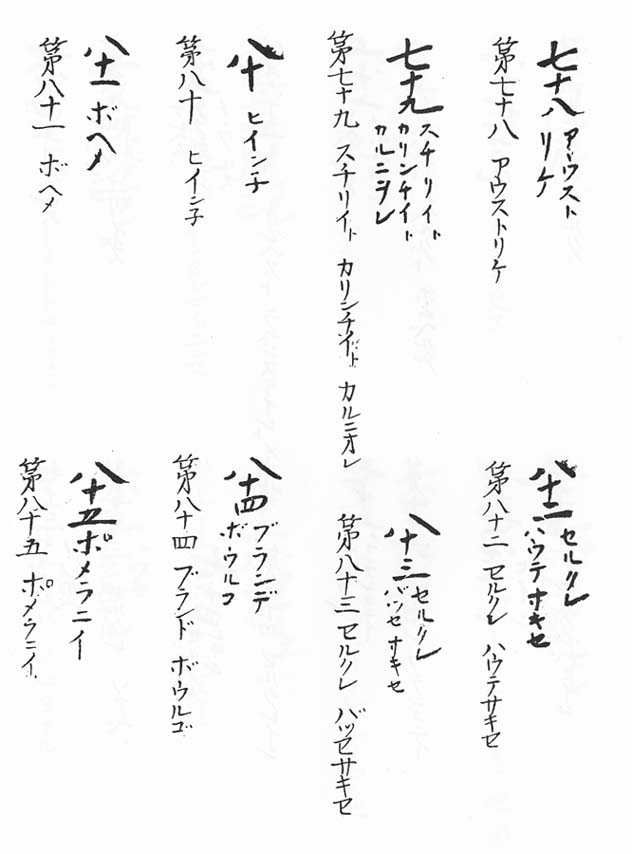 七十八 アウスト
リケ
第七十八 アウストリケ
七十九 スチリイト
カリンチイト
カルニヲレ
第七十九 スチリイト カリンチイト カルニオレ
八十 ヒイン子
第八十 ヒイン子
八十一 ボヘメ
第八十一 ボヘメ
八十二 セルクレ
ハウテオキセ
第八十二 セルクレ ハウテサキセ
八十三 セルクレ
バッセオキセ
第八十三 セルクレ バッセサキセ
八十四 ブランデ
ボウルコ
第八十四 ブランド ボウルゴ
八十五 ポメラニイ
第八十五 ポメラニイ